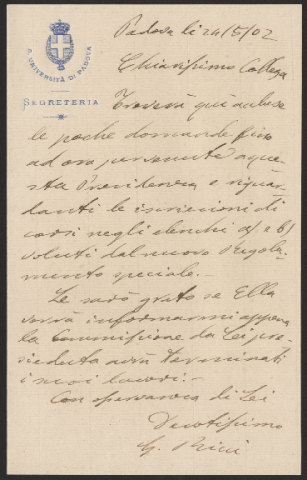 R. UNIVERSITÀ DI PADOVA
SEGRETERIA
Padova li 24/5/02
Chiarissimo Collega
Troverà qui accluse
le poche domande fino
ad ora pervenute a que-
sta Presidenza e riguar-
danti le iscrizioni di
corsi negli elenchi a) e b)
voluti dal nuovo Regola-
mento speciale.-
Le sarò grato se Ella
vorrà informarmi appena
la Commissione da Lei pre-
sieduta avrà terminati
i suoi lavori.-
Con osservanza di Lei
Devotissimo
G. Ricci